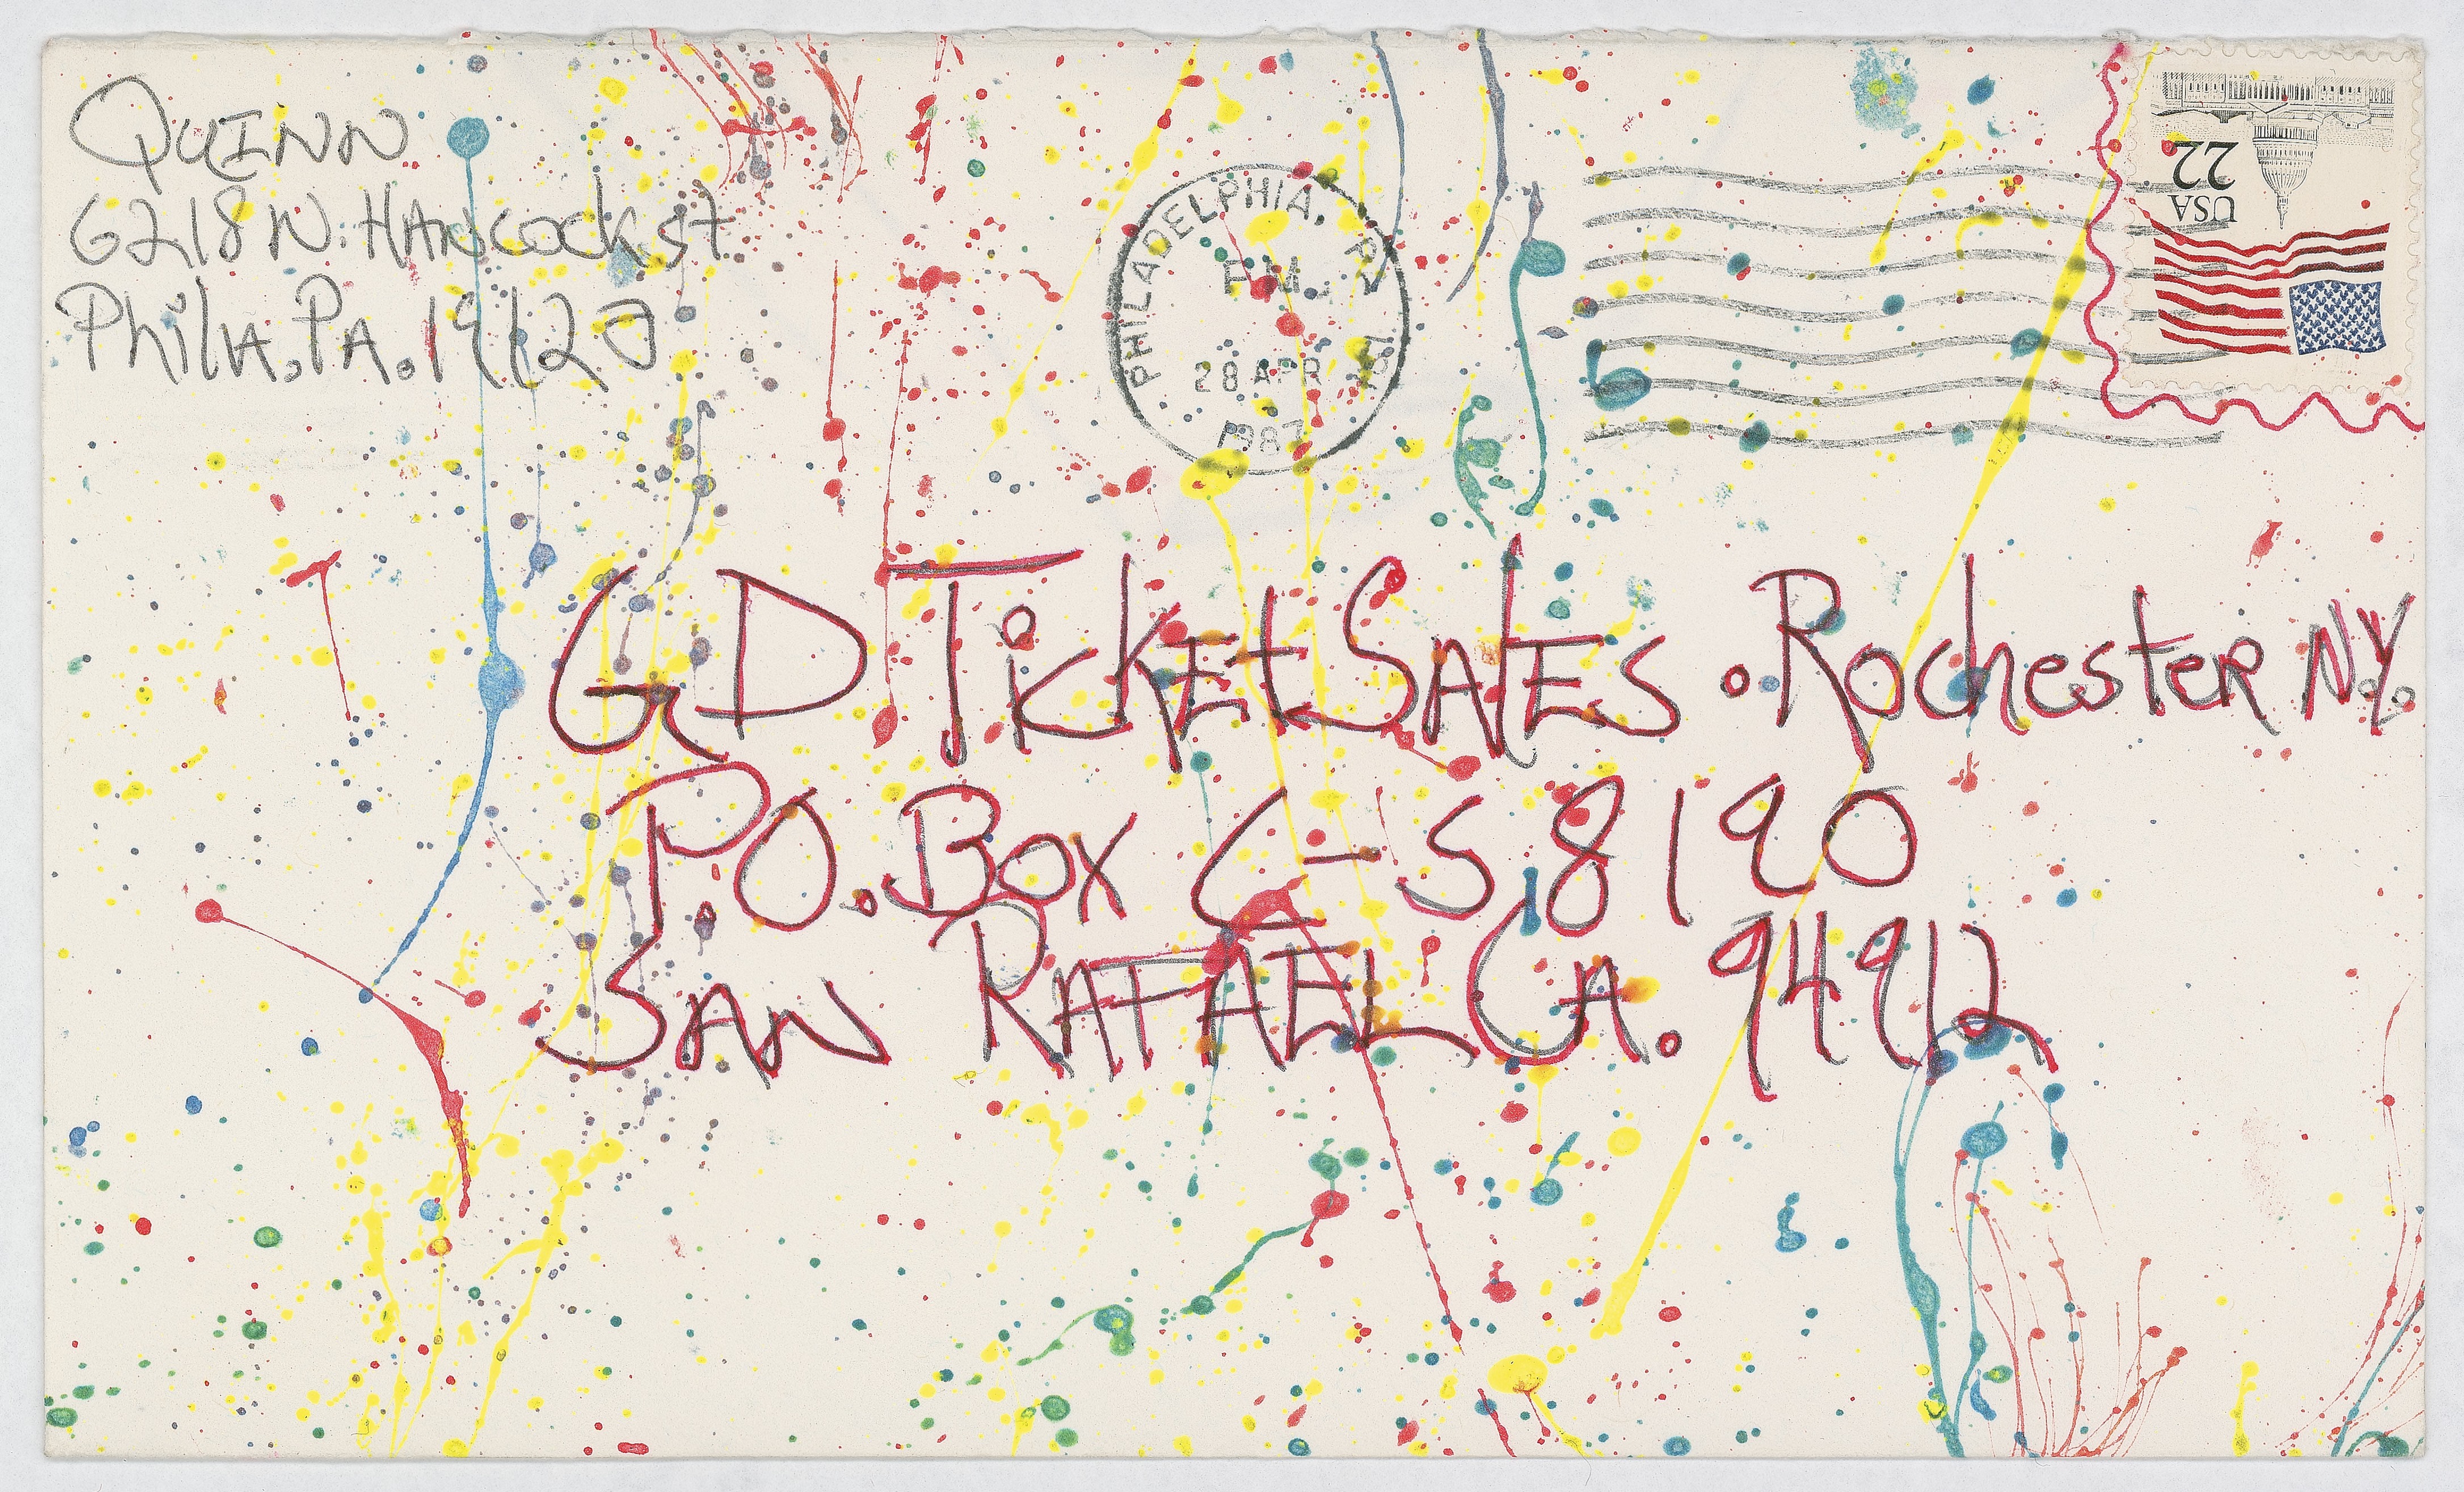 QUINN
6218 N. HANCOCK St
Phila. PA. 19120
PHILADELPHIA, PA
PM
28 APR
1987
USA
22
GD TickEt SAlES . RochesteR N.Y.
P.O. Box C-S 8190
SAN RAFAEL CA. 94912